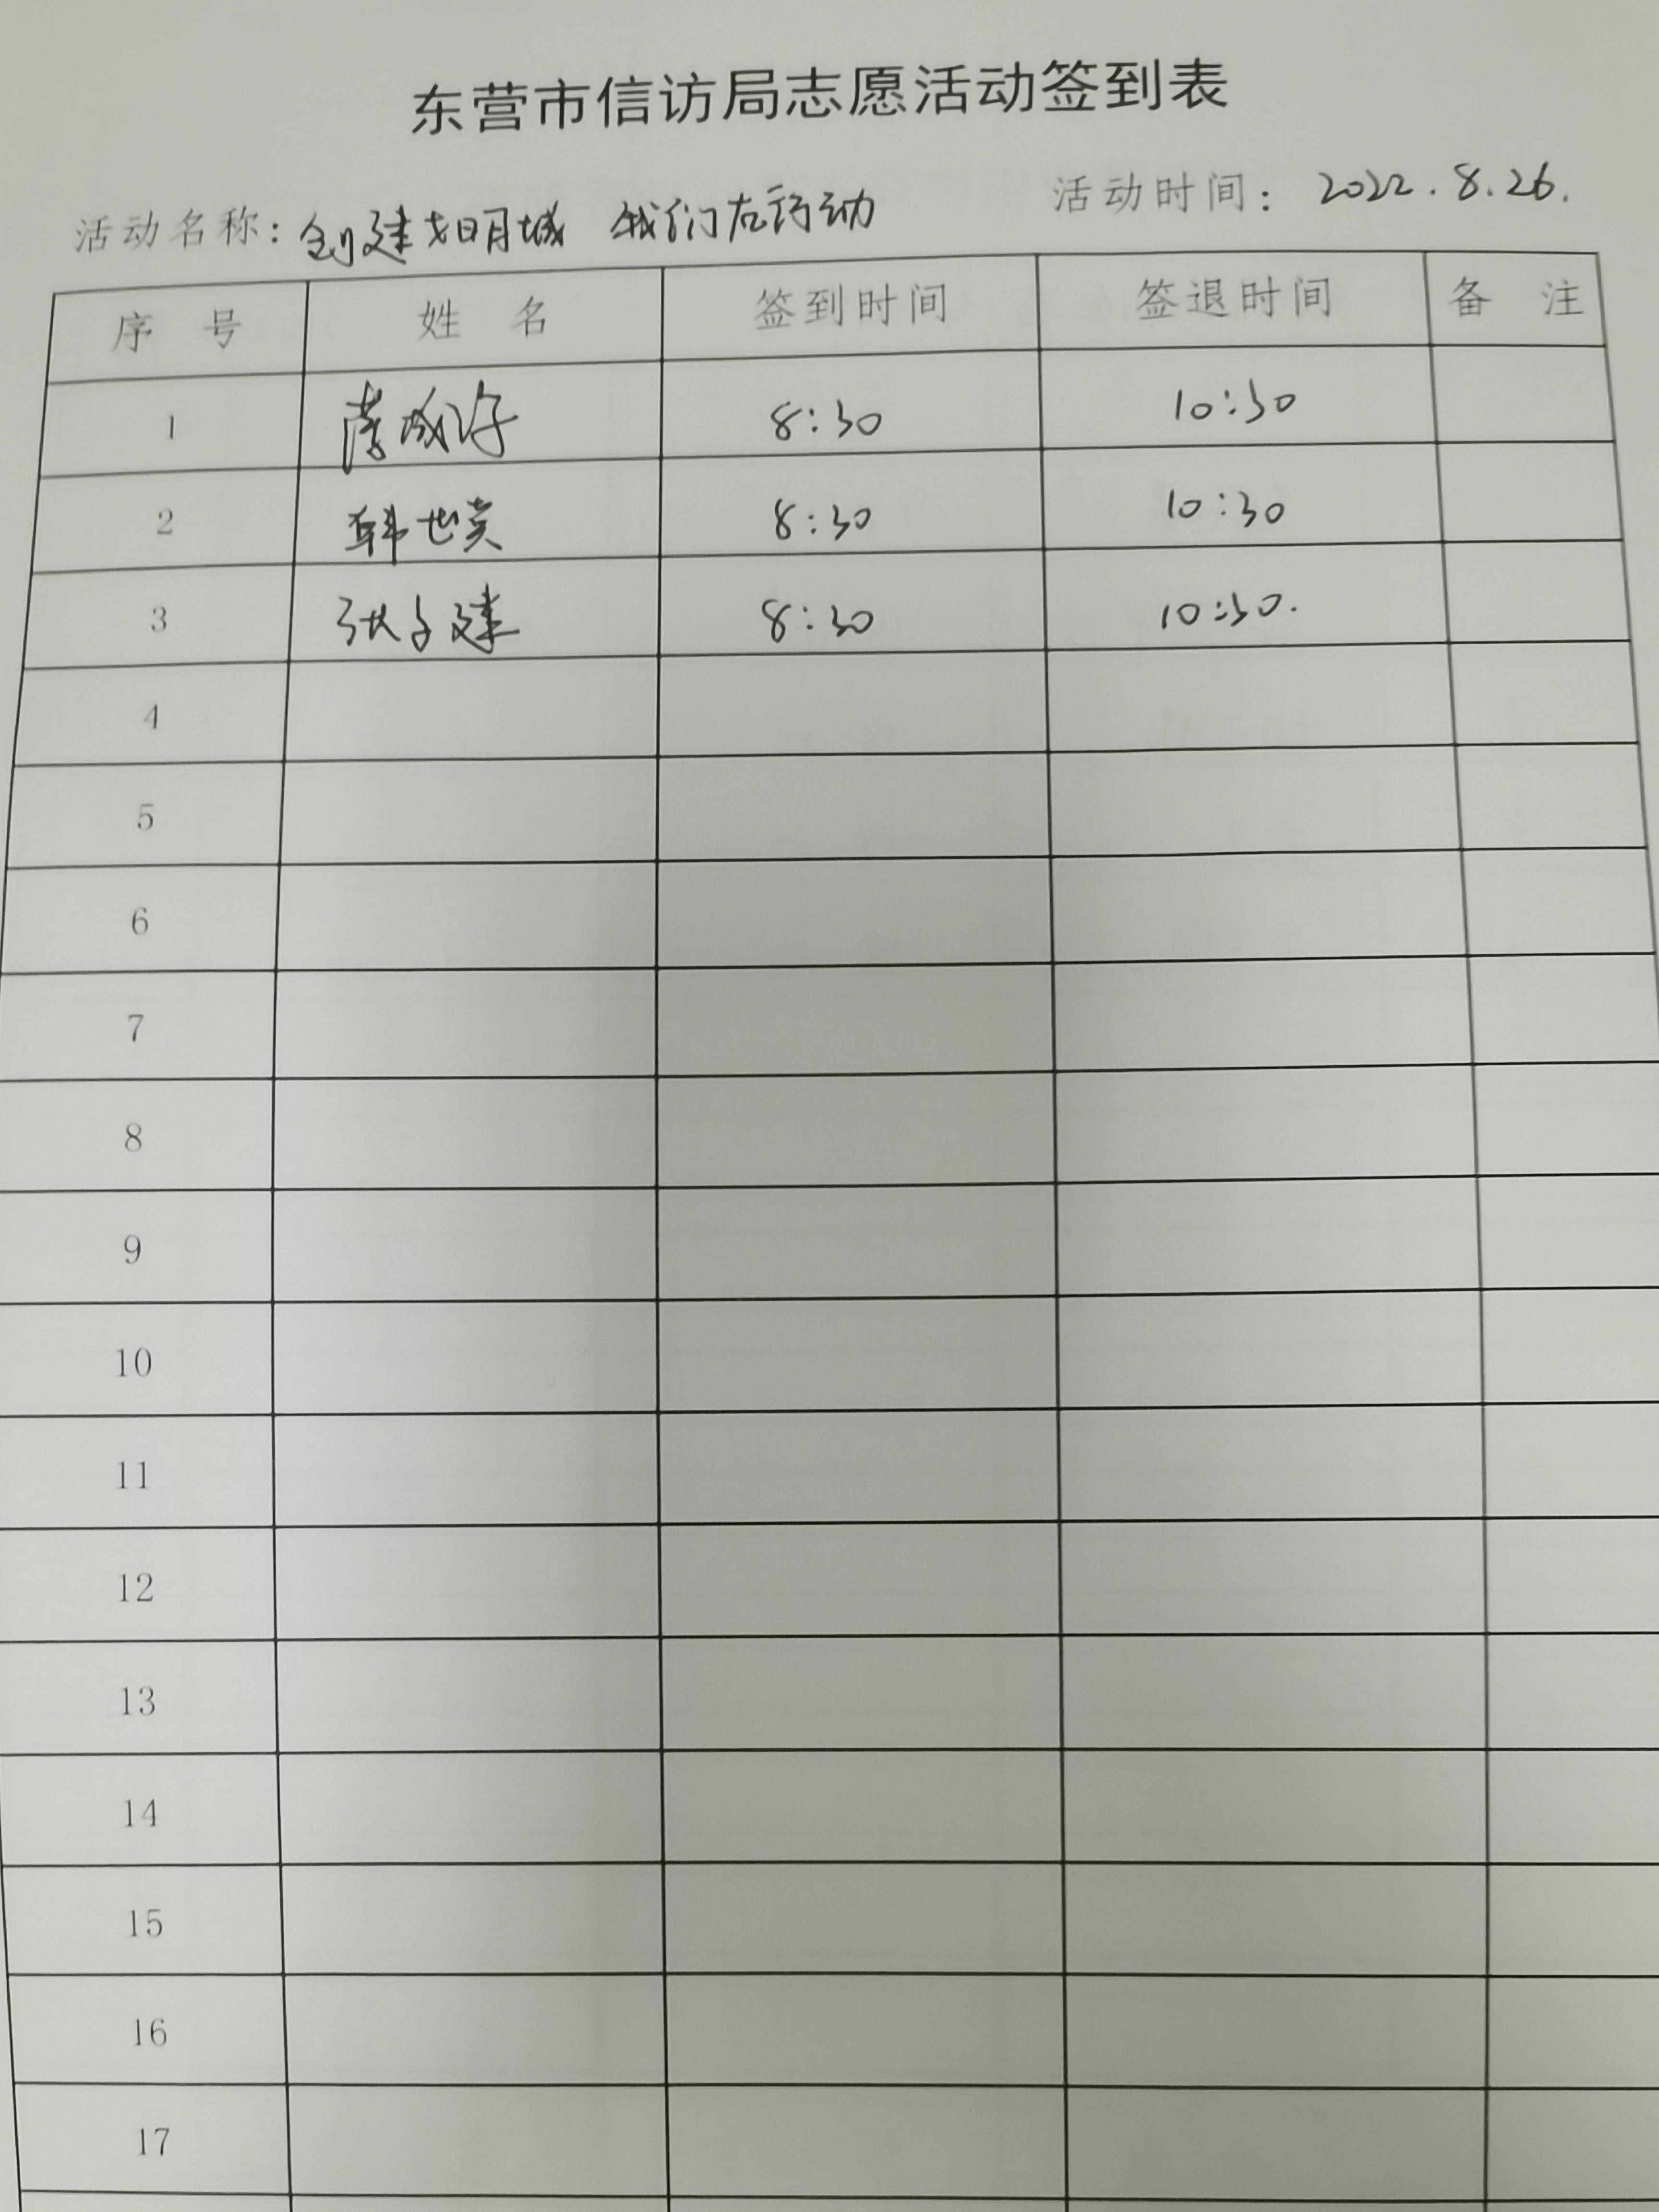 东营市信访局志愿活动签到表
活动名称：创建文明城 我们在行动 活动时间：2022.8.26.
序 号 姓 名 签到时间 签退时间 备 注
1 8:30 10:30
2 韩世英 8:30 10:30
3 张子建 8:30 10:30.
4
5
6
7
8
9
10
11
12
13
14
15
16
17